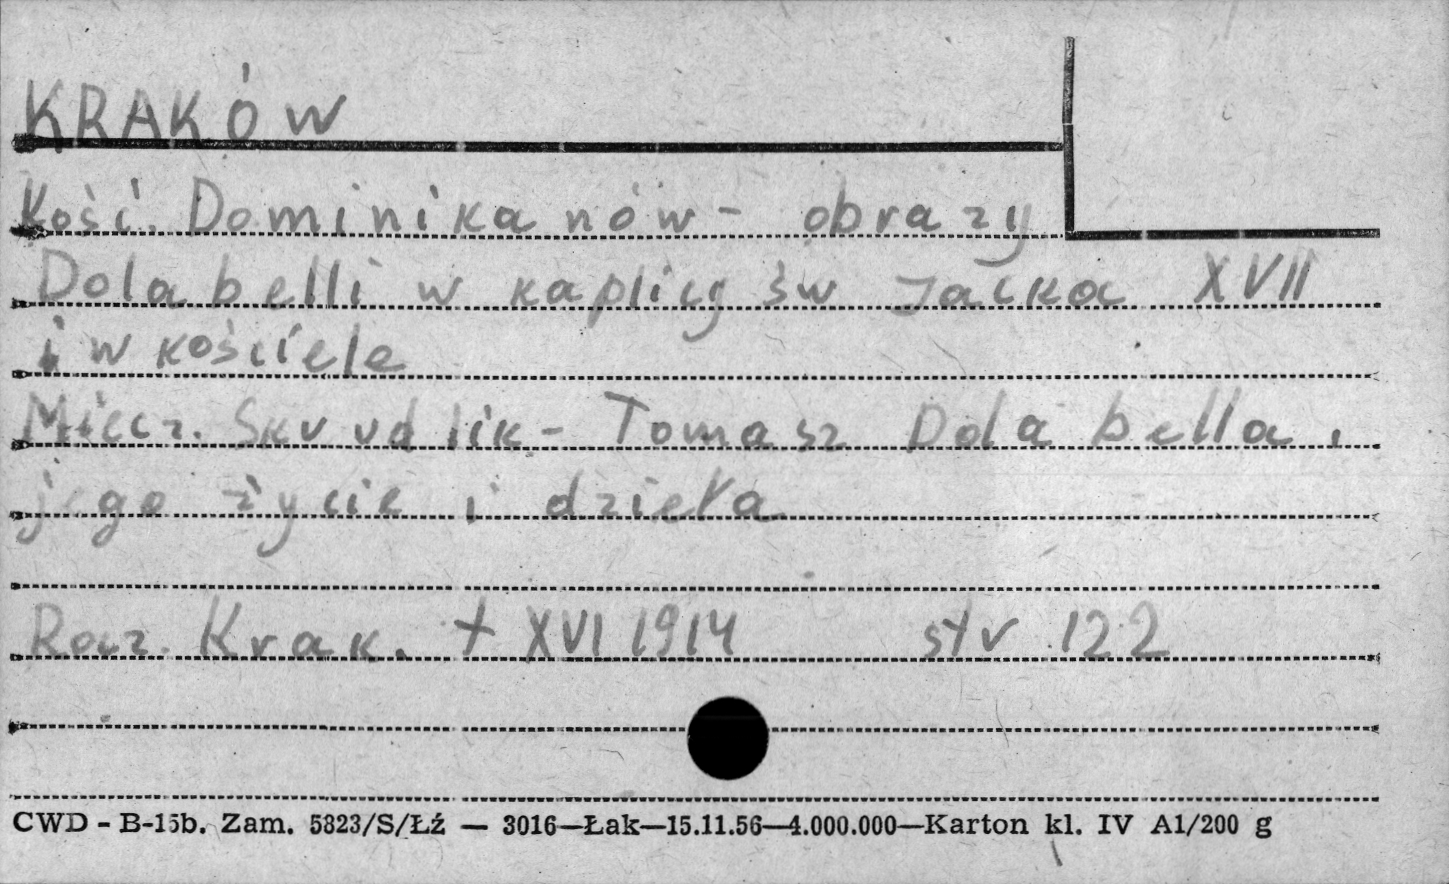 KRAKÓW
Kość. Dominikanów - obrazy
Dolabelli w kaplicy św Jacka XVII
i w kościele
Miecz. Skrudlik - Tomasz Dolabella,
jego życie i dzieła
Rocz. Krak. t XVI 1914 str 122
CWD - B-15b. Zam. 5823/S/Łź — 3016—Łak—15.11.56—4.000.000—Karton kl. IV A1/200 g